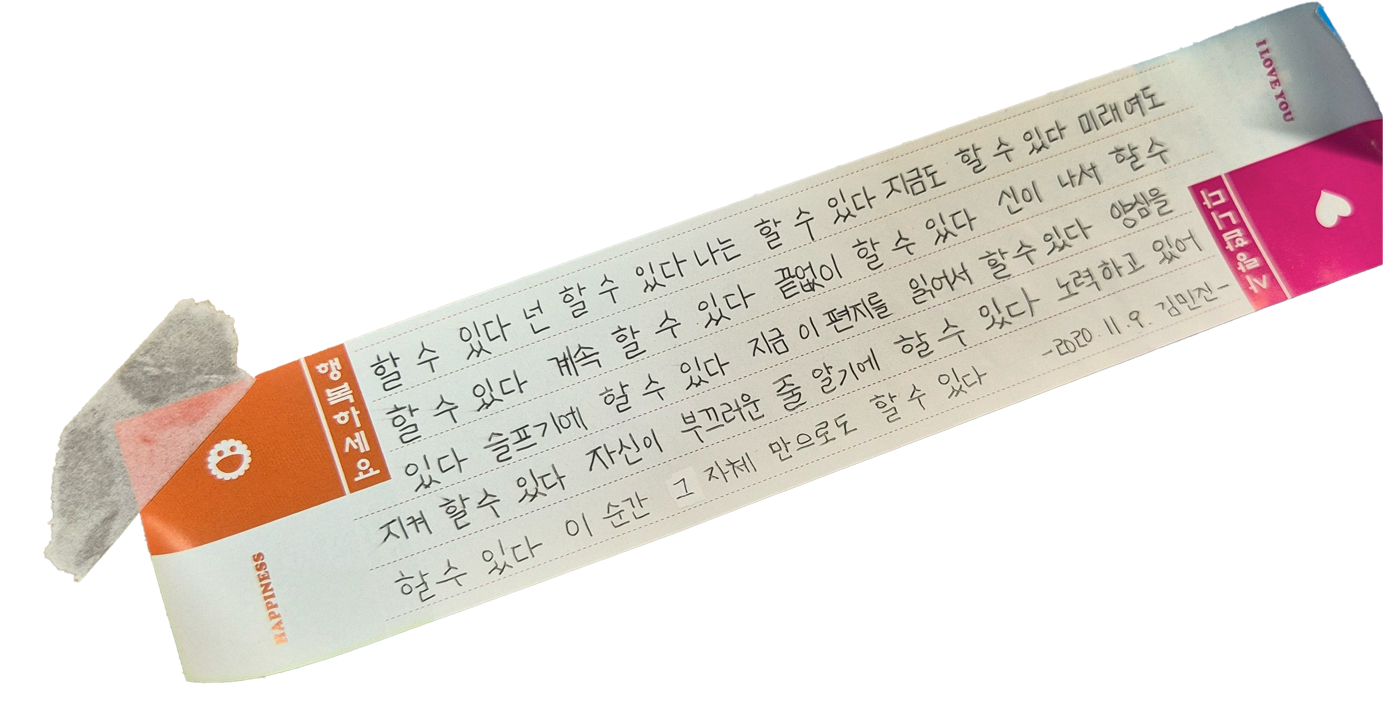 할 수 있다 넌 할 수 있다 나는 할 수 있다 지금도 할 수 있다 미래에도
할 수 있다 계속 할 수 있다 끝없이 할 수 있다 신이 나서 할 수
있다 슬프기에 할 수 있다 지금 이 편지를 읽어서 할 수 있다 양심을
지켜 할 수 있다 자신이 부끄러운 줄 알기에 할 수 있다 노력하고 있어
할 수 있다 이 순간 그 자체 만으로도 할 수 있다
-2020 11. 9. 김민진-
행복하세요
HAPPINESS
I LOVE YOU